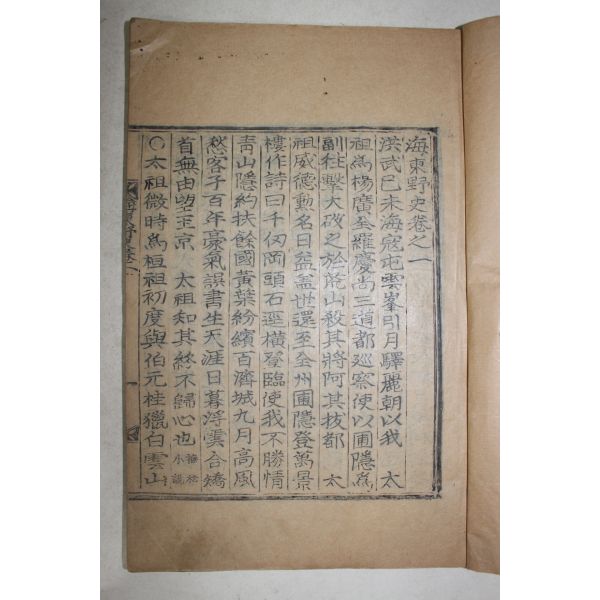 海東野史卷之一
洪武己未海寇屯雲峯引月驛麗朝以我　太
祖爲楊廣全羅慶尙三道都巡察使以圃隱爲
副往擊大破之於荒山殺其將阿其拔都　太
祖威德勳名日益盖世還至全州圃隱登萬景
樓作詩曰千仞岡頭石逕橫登臨使我不勝情
靑山隱約扶餘國黃葉紛繽百濟城九月高風
愁客子百年豪氣誤書生天涯日暮浮雲合矯
首無由望玉京　太祖知其終不歸心也 小說
○太祖微時爲桓祖初度與伯元桂獵白雲山